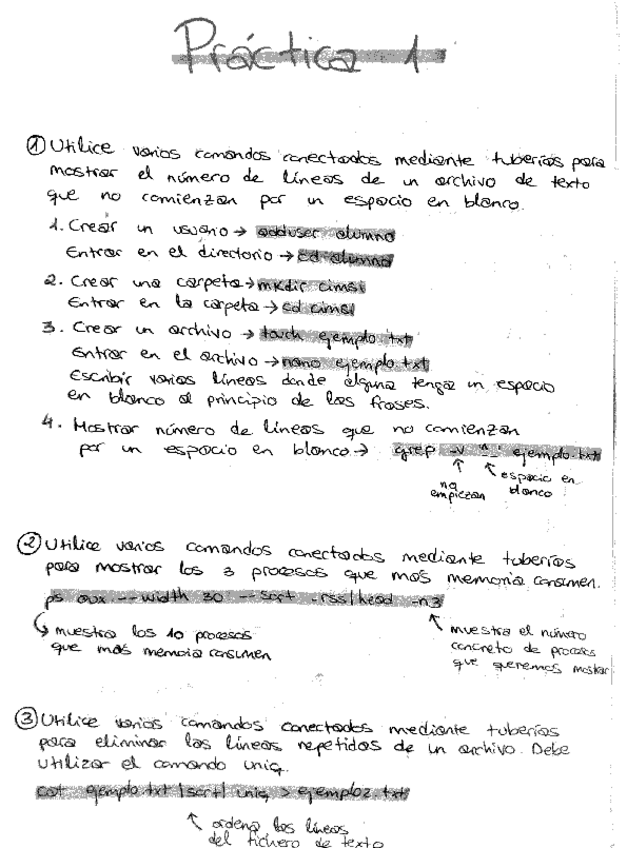 Práctica 1
① Utilice varios comandos conectados mediante tuberías para
mostrar el número de líneas de un archivo de texto
que no comienzan por un espacio en blanco.
1. Crear un usuario → adduser alumno
Entrar en el directorio → cd alumno
2. Crear una carpeta → mkdir cimsi
Entrar en la carpeta → cd cimsi
3. Crear un archivo → touch ejemplo.txt
Entrar en el archivo → nano ejemplo.txt
Escribir varias líneas donde alguna tenga un espacio
en blanco al principio de las frases.
4. Mostrar número de líneas que no comienzan
por un espacio en blanco → grep -v '^_' ejemplo.txt
no empiezan
espacio en blanco
② Utilice varios comandos conectados mediante tuberías
para mostrar los 3 procesos que más memoria consumen.
ps aux --width 30 --sort -rss | head -n3
muestra los 10 procesos
que más memoria consumen
muestra el número
concreto de procesos
que queremos mostrar
③ Utilice varios comandos conectados mediante tuberías
para eliminar las líneas repetidos de un archivo. Debe
utilizar el comando uniq.
cat ejemplo.txt | sort | uniq > ejemplo2.txt
ordena las líneas
del fichero de texto